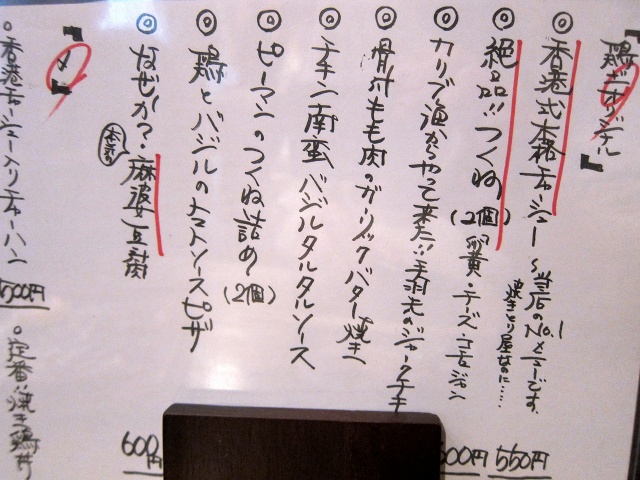 『鶏ギオリジナル』
◎香港式本格チャーシュー〜当店のNo.1メニューです。
焼きとり屋なのに……
550円
◎絶品!!つくね(2個)
◎カリブ海からやって来た!!手羽先のジャークチキ
◎骨付もも肉のガーリックバター焼き
◎チキン南蛮バジルタルタルソース
◎ピーマンのつくね詰め(2個)
◎鶏とバジルのトマトソースピザ
◎なぜか?・麻婆豆腐
本気の
600円
『〆』
○香港チャーシュー入りチャーハン
500円
○定番!!焼き鶏丼